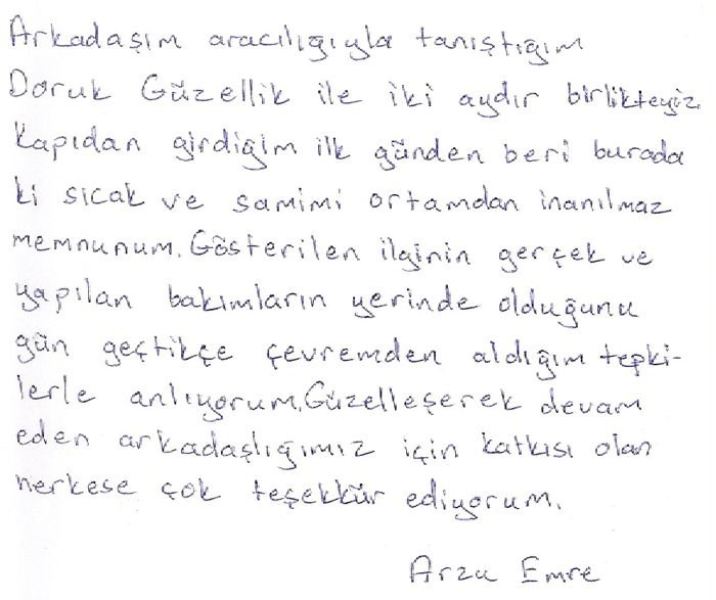 Arkadaşım aracılığıyla tanıştığım
Doruk Güzellik ile iki aydır birlikteyiz.
Kapıdan girdiğim ilk günden beri burada
ki sıcak ve samimi ortamdan inanılmaz
memnunum. Gösterilen ilginin gerçek ve
yapılan bakımların yerinde olduğunu
gün geçtikçe çevremden aldığım tepki-
lerle anlıyorum. Güzelleşerek devam
eden arkadaşlığımız için katkısı olan
herkese çok teşekkür ediyorum.
Arzu Emre